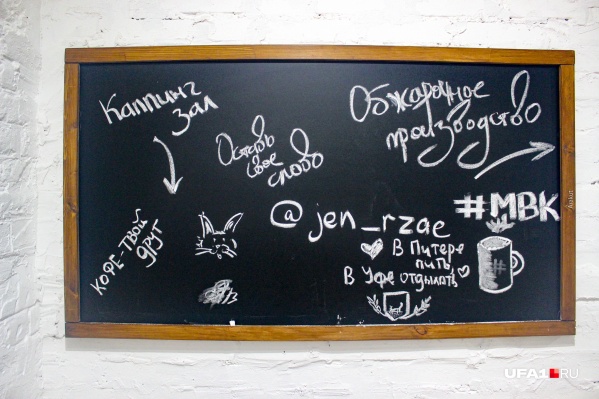 Каппинг
зал
Обжарочное
производство
Оставь
свое
слово
@jen_rzae
#МВК
Кофе-твой
друг
В Питере
пить
В Уфе отдыхать
#
UFA1.RU